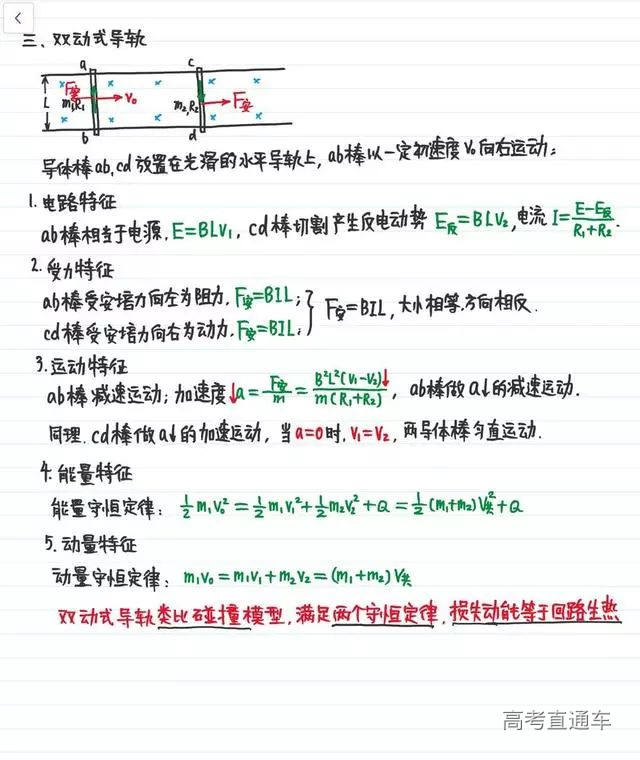 三、双动式导轨
a c
F安 v₀ F安
L m₁,R₁ m₂,R₂
b d
导体棒ab,cd放置在光滑的水平导轨上,ab棒以一定初速度V₀向右运动;
1.电路特征
ab棒相当于电源,E=BLV₁,cd棒切割产生反电动势 E反=BLV₂,电流 I=(E-E反)/(R₁+R₂).
2.受力特征
ab棒受安培力向左为阻力,F安=BIL;
cd棒受安培力向右为动力,F安=BIL;
F安=BIL,大小相等.方向相反.
3.运动特征
ab棒减速运动;加速度↓a=F安/m=B²L²(V₁-V₂)↓/m(R₁+R₂),ab棒做a↓的减速运动.
同理.cd棒做a↓的加速运动,当a=0时,V₁=V₂,两导体棒匀直运动.
4.能量特征
能量守恒定律:½m₁V₀²=½m₁V₁²+½m₂V₂²+Q=½(m₁+m₂)V共²+Q
5.动量特征
动量守恒定律:m₁v₀=m₁v₁+m₂v₂=(m₁+m₂)V共
双动式导轨类比碰撞模型,满足两个守恒定律,损失动能等于回路生热
高考直通车